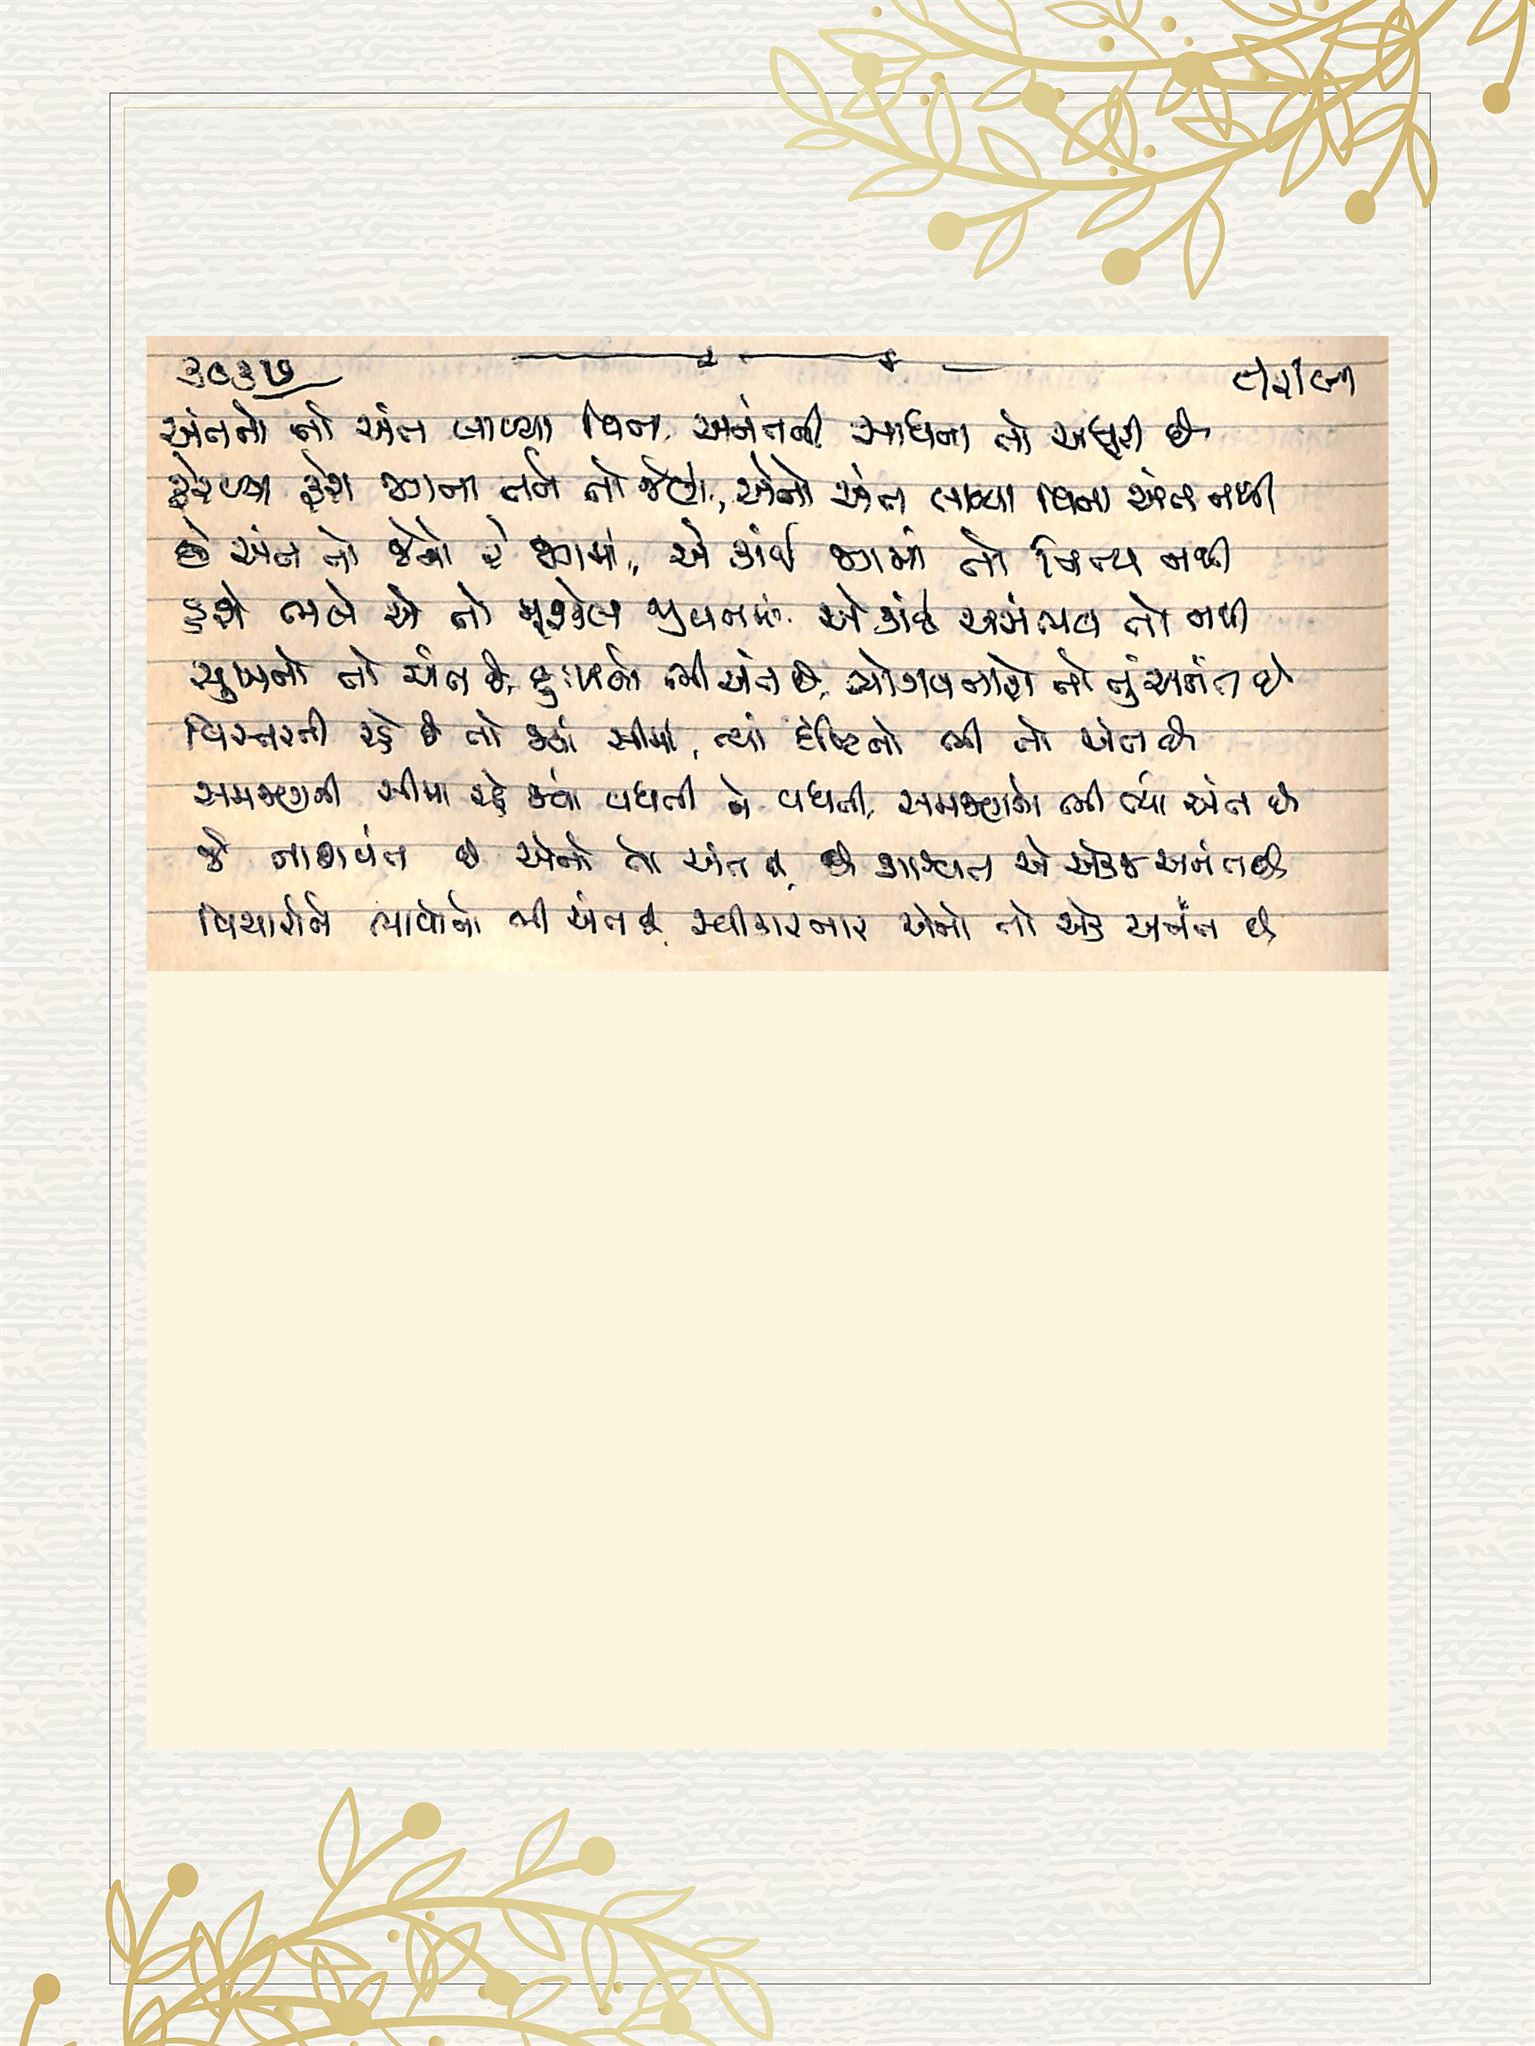 ૩૦૩૭
અંતનો તો અંત લાવ્યા વિના, અનંતની સાધના તો અધૂરી છે
ફેરવ્યા ફેરા જગના તને તો જેણે, એનો અંત લાવ્યા વિના અંત નથી
છે અંત તો જેનો રે જગમાં, એ કાંઈ જગમાં તો નિત્ય નથી
હશે ભલે એ તો મુશ્કેલ જીવનમાં, એ કાંઈ અસંભવ તો નથી
સુખનો તો અંત છે, દુઃખનો ભી અંત છે, ભોગવનારો તો તું અનંત છે
વિસ્તરતી રહે છે તો જ્યાં સીમા, ત્યાં દૃષ્ટિનો ભી તો અંત છે
સમજણની સીમા રહે જ્યાં વધતી ને વધતી, સમજણનો ભી ત્યાં અંત છે
જે નાશવંત છે એનો તો અંત છે, છે શાશ્વત એ એક જ અનંત છે
વિચારોને ભાવોનો ભી અંત છે, સ્વીકારનાર એનો તો એક અનંત છે